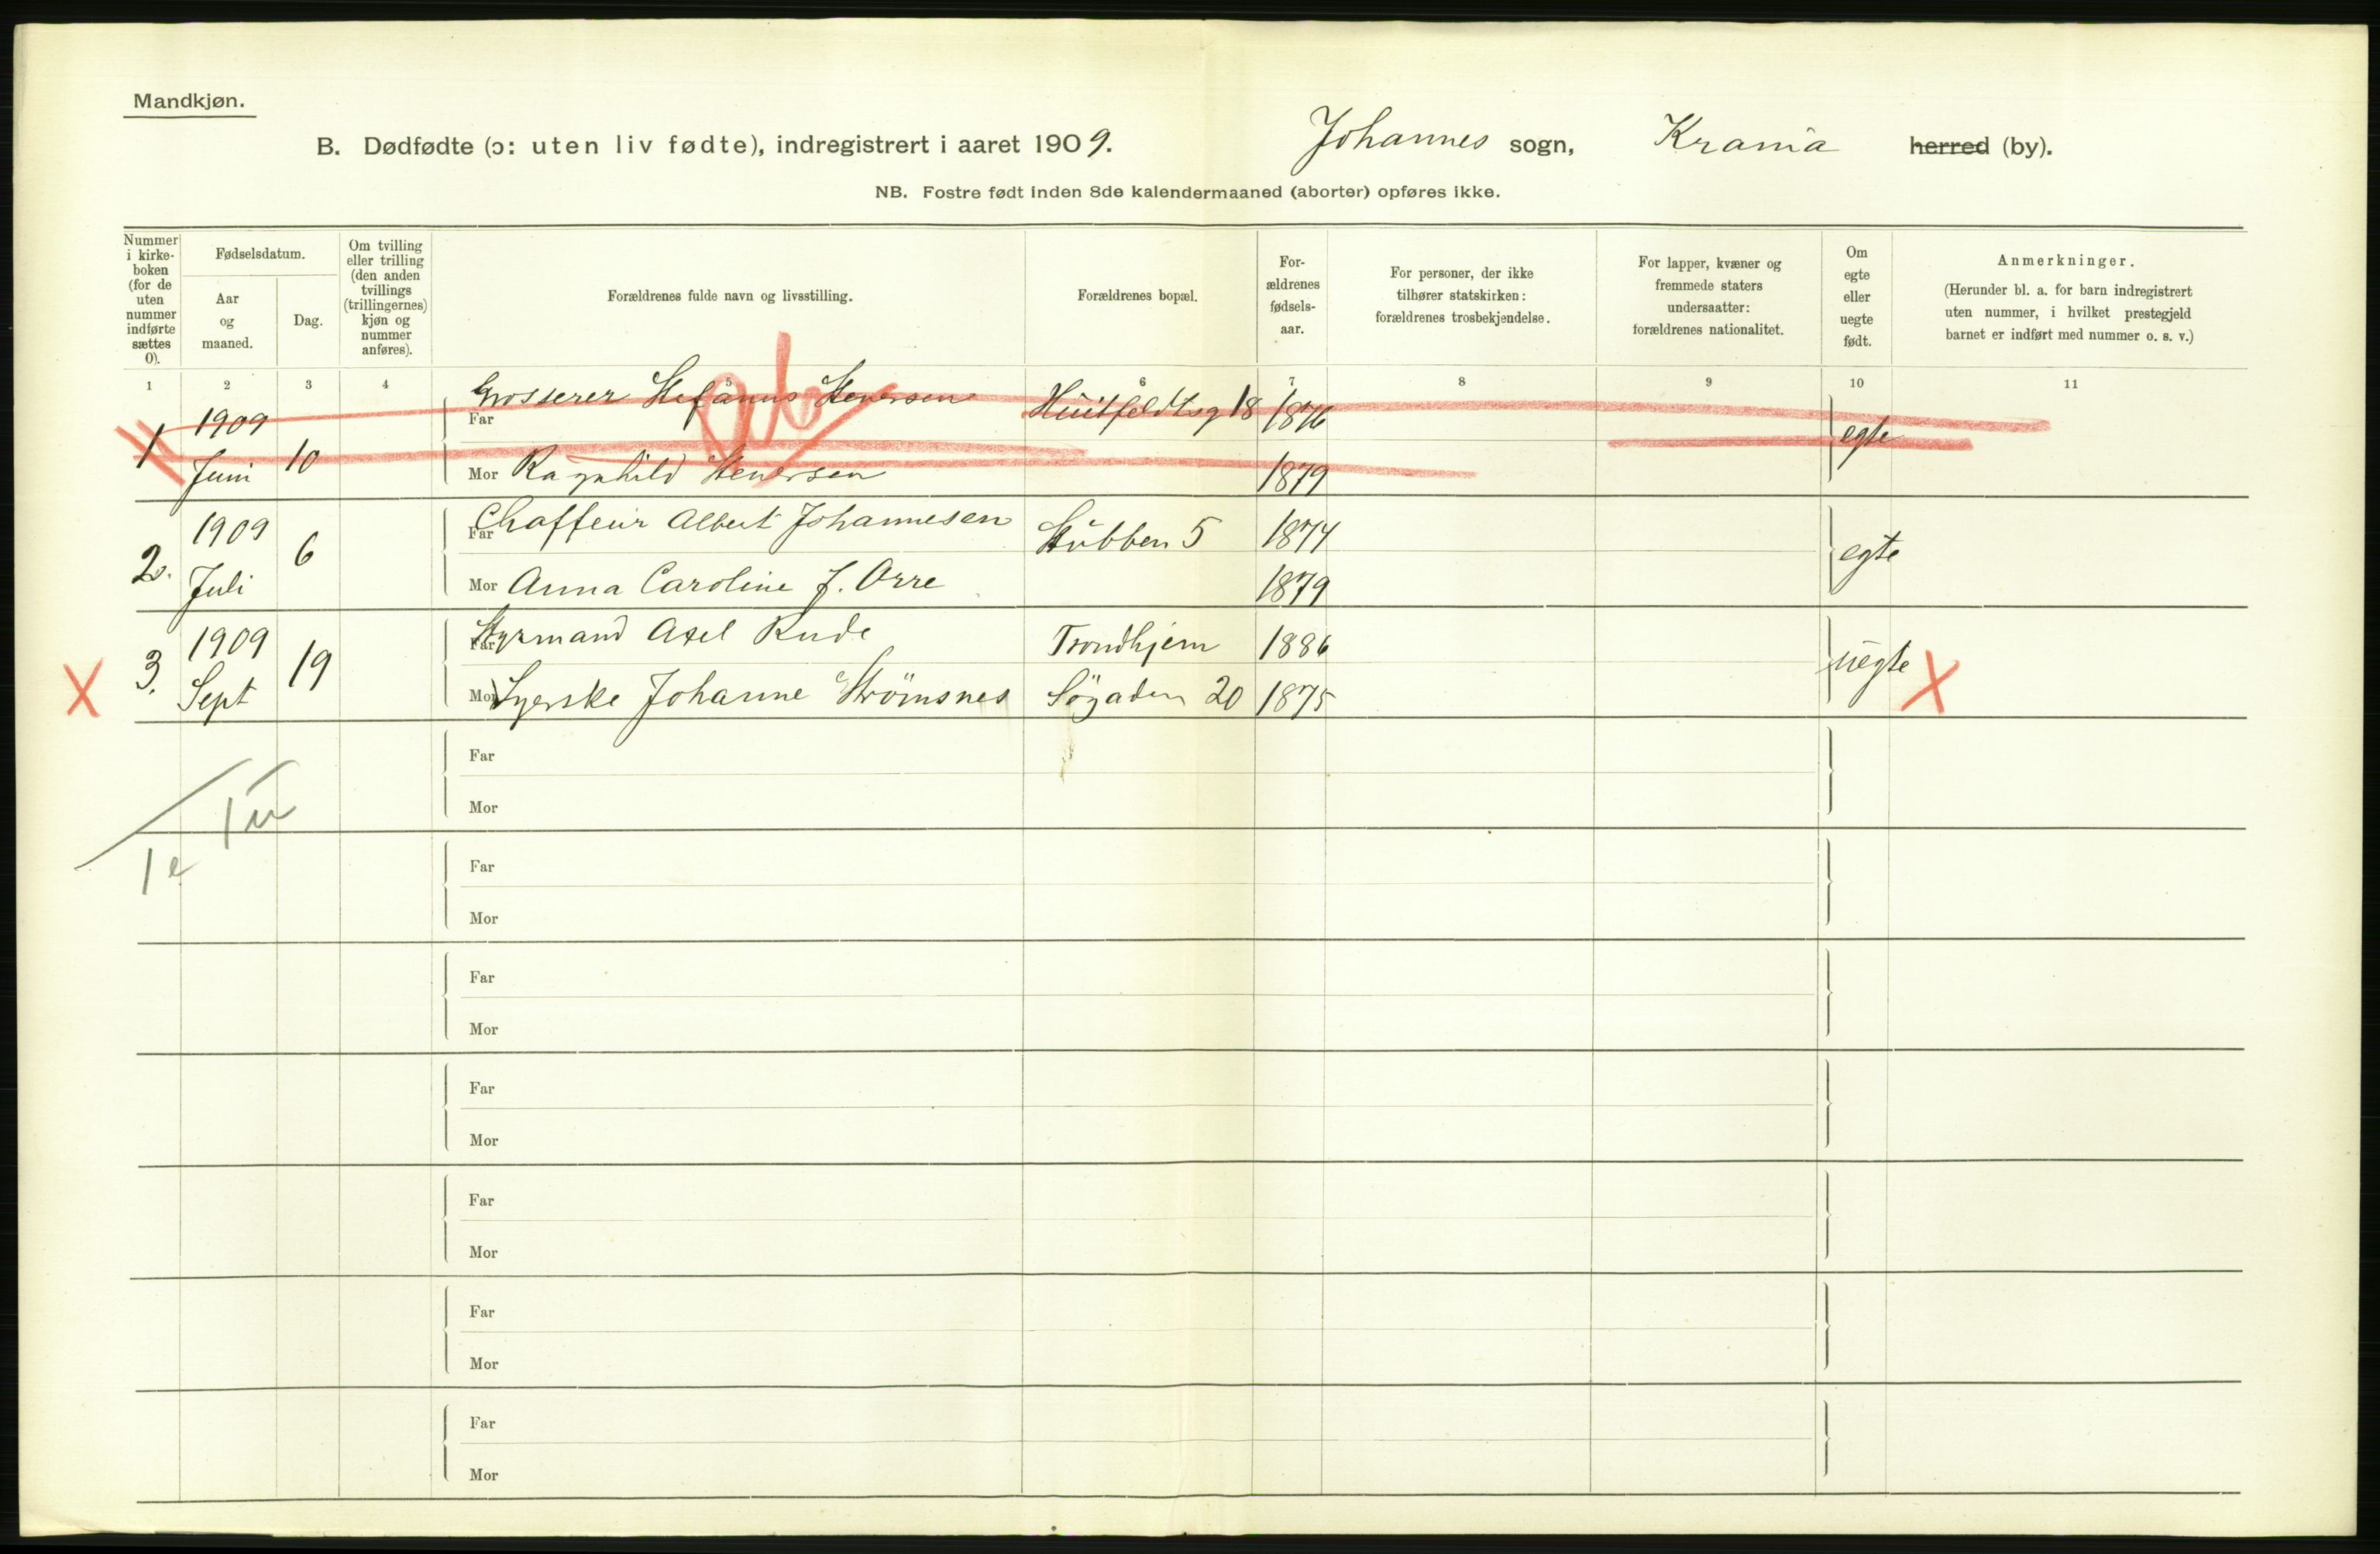 Mandkjøn.
B. Dødfødte (ɔ: uten liv fødte), indregistrert i aaret 1909. Johannes sogn, Krania herred (by).
NB. Fostre født inden 8de kalendermaaned (aborter) opføres ikke.
Nummer i kirke-boken (for de uten nummer indførte sættes 0).
Fødselsdatum.
Aar og maaned.
Dag.
Om tvilling eller trilling (den anden tvillings (trillingernes) kjøn og nummer anføres).
Forældrenes fulde navn og livsstilling.
Forældrenes bopæl.
For-ældrenes fødsels-aar.
For personer, der ikke tilhører statskirken: forældrenes trosbekjendelse.
For lapper, kvæner og fremmede staters undersaatter: forældrenes nationalitet.
Om egte eller uegte født.
Anmerkninger.
(Herunder bl. a. for barn indregistrert uten nummer, i hvilket prestegjeld barnet er indført med nummer o. s. v.)
1 2 3 4 5 6 7 8 9 10 11
1 1909 Juni 10
Far Grosserer Stefanus Stenersen Huitfeldtsg 18 1876 egte
Mor Ragnhild Stenersen 1879
2. 1909 Juli 6
Far Chaffeur Albert Johannesen Stubben 5 1874 egte
Mor Anna Caroline J. Orre 1879
X 3. 1909 Sept 19
Far Styrmand Axel Rude Trondhjem 1886 uegte X
Mor Syerske Johanne Strömsnes Søgaden 20 1875
Far
Mor
1 u
1 e
Far
Mor
Far
Mor
Far
Mor
Far
Mor
Far
Mor
Far
Mor